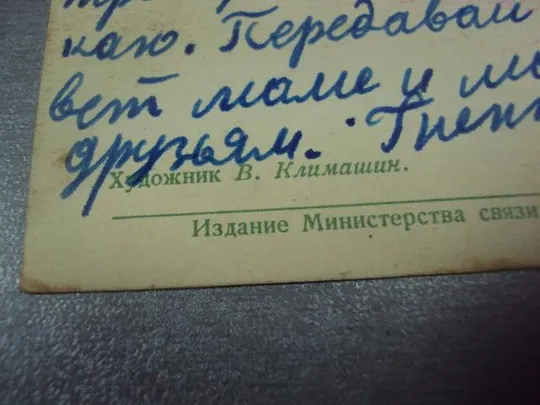 каю. Передавай
вет маме и
друзьям.
Художник В. Климашин.
Издание Министерства связи